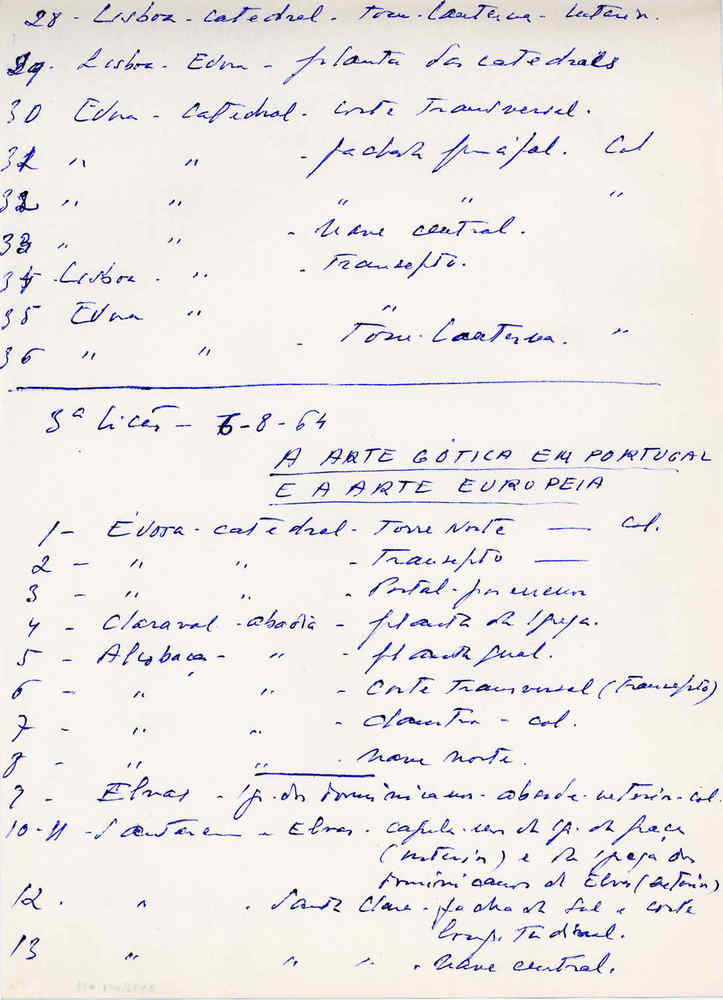 28 - Lisboa - catedral - Torre-Lanterna - interior.
29 - Lisboa - Evora - planta das catedrais
30 Evora - catedral - corte transversal.
31 " " - fachada principal. Col
32 " " " " "
33 " " - nave central.
34 - Lisboa - " - Transepto.
35 Evora " "
36 " " - Torre-Lanterna. "
3ª lição - 6-8-64
A ARTE GÓTICA EM PORTUGAL
E A ARTE EUROPEIA
1 - Évora - catedral - Torre Norte — col.
2 - " " - Transepto —
3 - " " - Portal - pormenor
4 - Claraval - abadia - planta da igreja.
5 - Alcobaça - " - planta geral.
6 - " " - corte transversal (Transepto)
7 - " " - claustro - col.
8 - " " - nave norte.
9 - Elvas - ig. dos Dominicanos - abside - exterior - col.
10-11 - Santarem - Elvas - capela-mor da ig. da Graça
(interior) e da igreja dos
Dominicanos de Elvas (interior)
12 - " - Santa Clara - fachada sul e corte
longitudinal.
13 " " " - nave central.